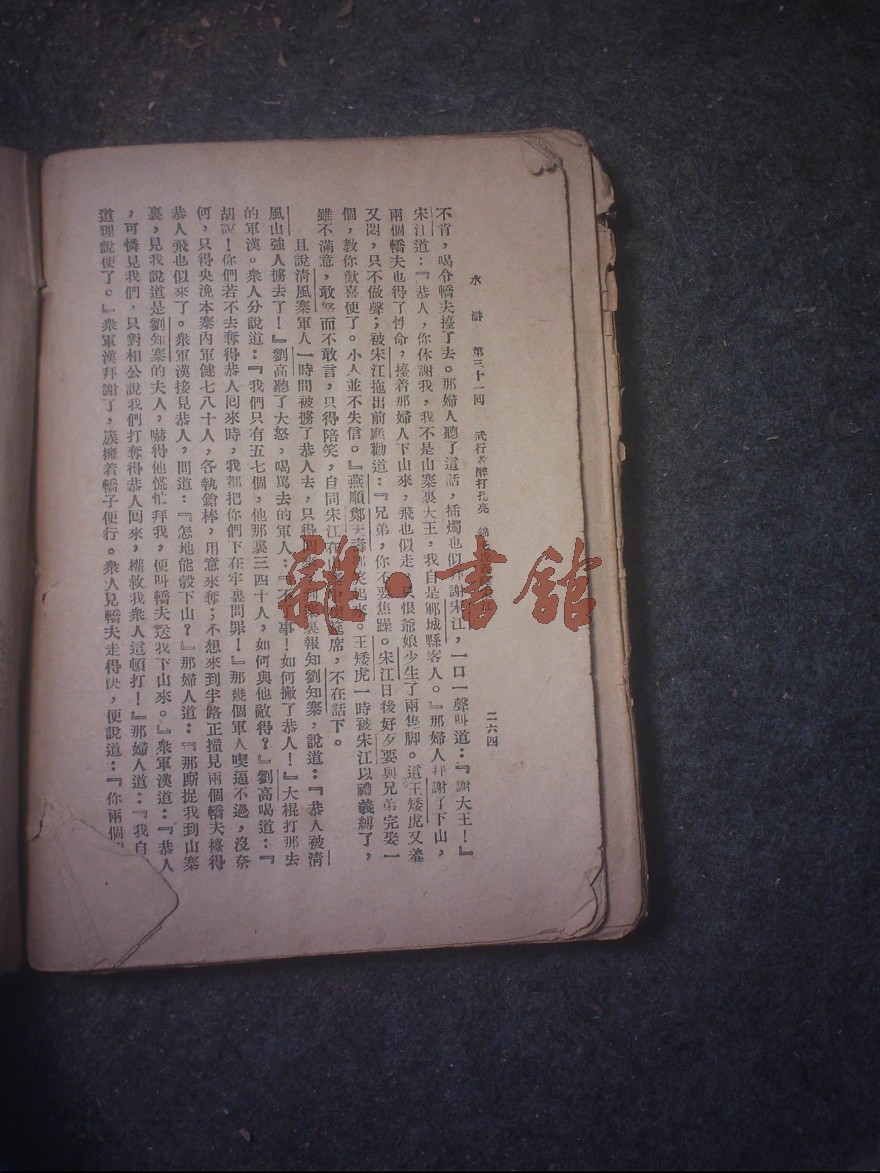 水滸 第三十一回 武行者醉打孔亮 二六四
不肯,喝令轎夫擡了去。那婦人聽了這話,插燭也似拜謝宋江,一口一聲叫道:『謝大王!』
宋江道:『恭人,你休謝我,我不是山寨裏大王,我自是鄆城縣客人。』那婦人拜謝了下山,
兩個轎夫也得了性命,擡着那婦人下山來,飛也似走,只恨爺娘少生了兩隻脚。這王矮虎又羞
又悶,只不做聲;被宋江拖出前廳勸道:『兄弟,你不要焦躁。宋江日後好歹要與兄弟完娶一
個,教你歡喜便了。小人並不失信。』燕順鄭天壽都笑起來。王矮虎一時被宋江以禮義縛了,
雖不滿意,敢怒而不敢言,只得陪笑,自同宋江在山寨中筵席,不在話下。
且說清風寨軍人一時間被擄了恭人去,只得回到寨裏報知劉知寨,說道:『恭人被清
風山強人擄去了!』劉高聽了大怒,喝罵去的軍人:『不了事!如何撇了恭人!』大棍打那去
的軍漢。衆人分說道:『我們只有五七個,他那裏三四十人,如何與他敵得?』劉高喝道:『
胡說!你們若不去奪得恭人回來時,我都把你們下在牢裏問罪!』那幾個軍人喫逼不過,沒奈
何,只得央浼本寨內軍健七八十人,各執鎗棒,用意來奪;不想來到半路正撞見兩個轎夫擡得
恭人飛也似來了。衆軍漢接見恭人,問道:『怎地能彀下山?』那婦人道:『那厮捉我到山寨
裏,見我說道是劉知寨的夫人,嚇得他慌忙拜我,便叫轎夫送我下山來。』衆軍漢道:『恭人
,可憐見我們,只對相公說我們打奪得恭人回來,權救我衆人這頓打!』那婦人道:『我自
道理說便了。』衆軍漢拜謝了,簇擁着轎子便行。衆人見轎夫走得快,便說道:『你兩個
雜·書館